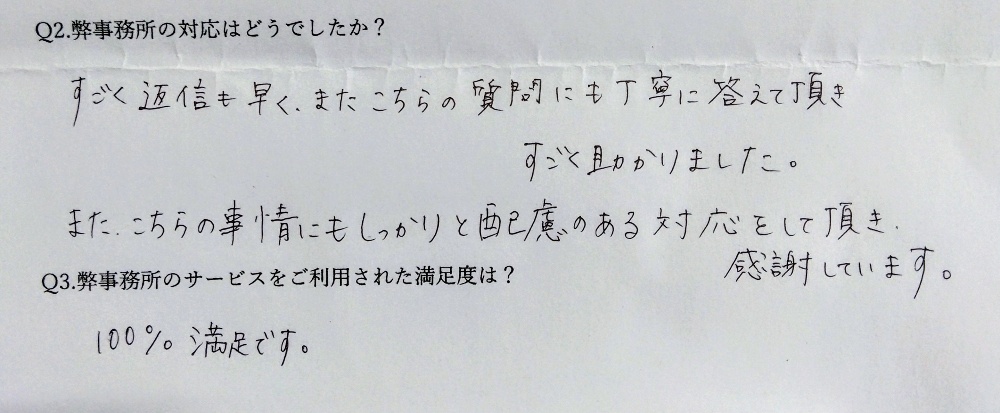 Q2.弊事務所の対応はどうでしたか？
すごく返信も早く、またこちらの質問にも丁寧に答えて頂き
すごく助かりました。
また、こちらの事情にもしっかりと配慮のある対応をして頂き、
感謝しています。
Q3.弊事務所のサービスをご利用された満足度は？
100% 満足です。